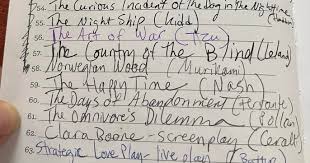 54. The Curious Incident of the Dog in the Nighttime
55. The Night Ship (Kidd)
56. The Art of War (Tzu)
57. The Country of the Blind (Leland)
58. Norwegian Wood (Murikami)
59. The Happy Time (Nash)
60. The Days of Abandonment (Ferrante)
61. The Omnivore's Dilemma (Pollan)
62. Clara Boone - Screenplay (
63. Strategic Love Play - live play (